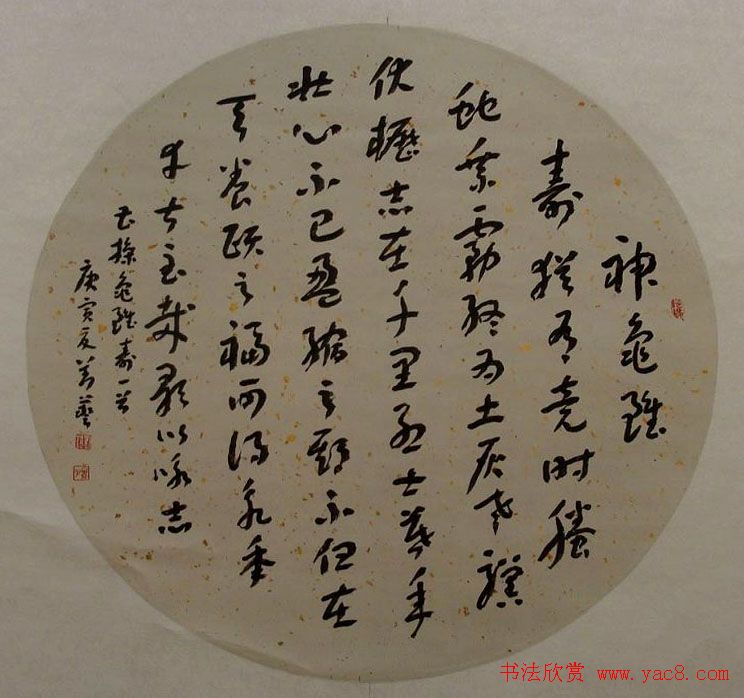 神龜雖
壽猶有竟時螣
蛇乘霧終為土灰老驥
伏櫪志在千里烈士暮年
壯心不已盈縮之期不但在
天養頤之福可得永年
幸甚至哉歌以咏志
曹操龜雖壽一首
庚寅夏
书法欣赏 www.yac8.com